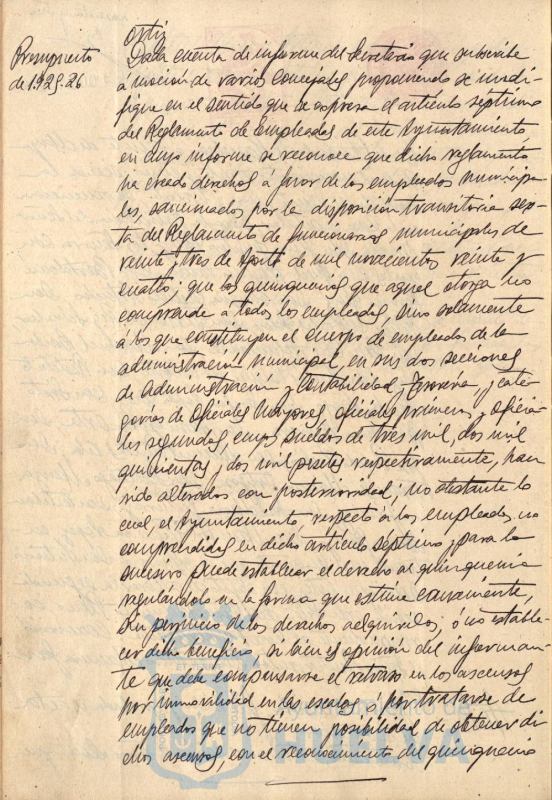 Presupuesto
de 1.925-26
Ortiz
Dada cuenta de informe del Secretario que suscribe
á moción de varios concejales proponiendo se modi-
fique en el sentido que se expresa el artículo séptimo
del Reglamento de empleados de este Ayuntamiento
en cuyo informe se reconoce que dicho reglamento
ha creado derechos á favor de los empleados municipa-
les, sancionados por la disposición transitoria sex-
ta del Reglamento de funcionarios municipales de
veinte y tres de Agosto de mil novecientos veinte y
cuatro; que los quinquenios que aquel otorga no
comprende a todos los empleados, sino solamente
á los que constituyen el cuerpo de empleados de la
administración municipal, en sus dos secciones
de Administración y Contabilidad y Tesorería, y cate-
gorías de Oficiales Mayores, oficiales primeros y oficia-
les segundos, cuyos sueldos de tres mil, dos mil
quinientas y dos mil pesetas respectivamente, han
sido alterados con posterioridad; no obstante lo
cual, el Ayuntamiento, respecto á los empleados no
comprendidos en dicho artículo séptimo y para lo
sucesivo puede establecer el derecho al quinquenio
regulándolo en la forma que estime conveniente,
sin perjuicio de los derechos adquiridos; ó no estable-
cer dicho beneficio, si bien es opinión del informan-
te que debe compensarse el retraso en los ascensos
por inmovilidad en las escalas ó por tratarse de
empleados que no tienen posibilidad de obtener di-
chos ascensos, con el reconocimiento del quinquenio